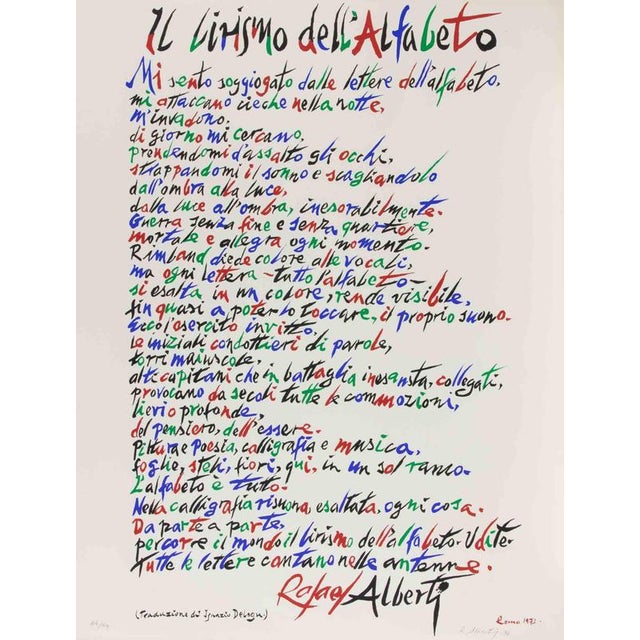 Il lirismo dell'Alfabeto
Mi sento soggiogato dalle lettere dell'alfabeto,
mi attaccano cieche nella notte,
m'invadono,
di giorno mi cercano,
prendendomi d'assalto gli occhi,
strappandomi il sonno e scagliandolo
dall'ombra alla luce,
dalla luce all'ombra, inesorabilmente.
Guerra senza fine e senza quartiere,
mortale e allegra ogni momento.
Rimbaud diede colore alle vocali,
ma ogni lettera - tutto l'alfabeto -
si esalta in un colore, rende visibile,
fin quasi a poterlo toccare, il proprio suono.
Ecco l'esercito invitto,
le iniziali condottieri di parole,
torri maiuscole,
alti capitani che in battaglia inesausta, collegati,
provocano da secoli tutte le commozioni,
lievi o profonde,
del pensiero, dell'essere.
Pittura e Poesia, calligrafia e musica,
foglie, steli, fiori, qui, in un sol ramo.
L'alfabeto è tutto.
Nella calligrafia risuona, esaltata, ogni cosa.
Da parte a parte,
percorre il mondo il lirismo dell'alfabeto. Udite.
Tutte le lettere cantano nelle antenne.
Rafael Alberti
(Traduzione di Ignazio Delogu)
Roma 1972.